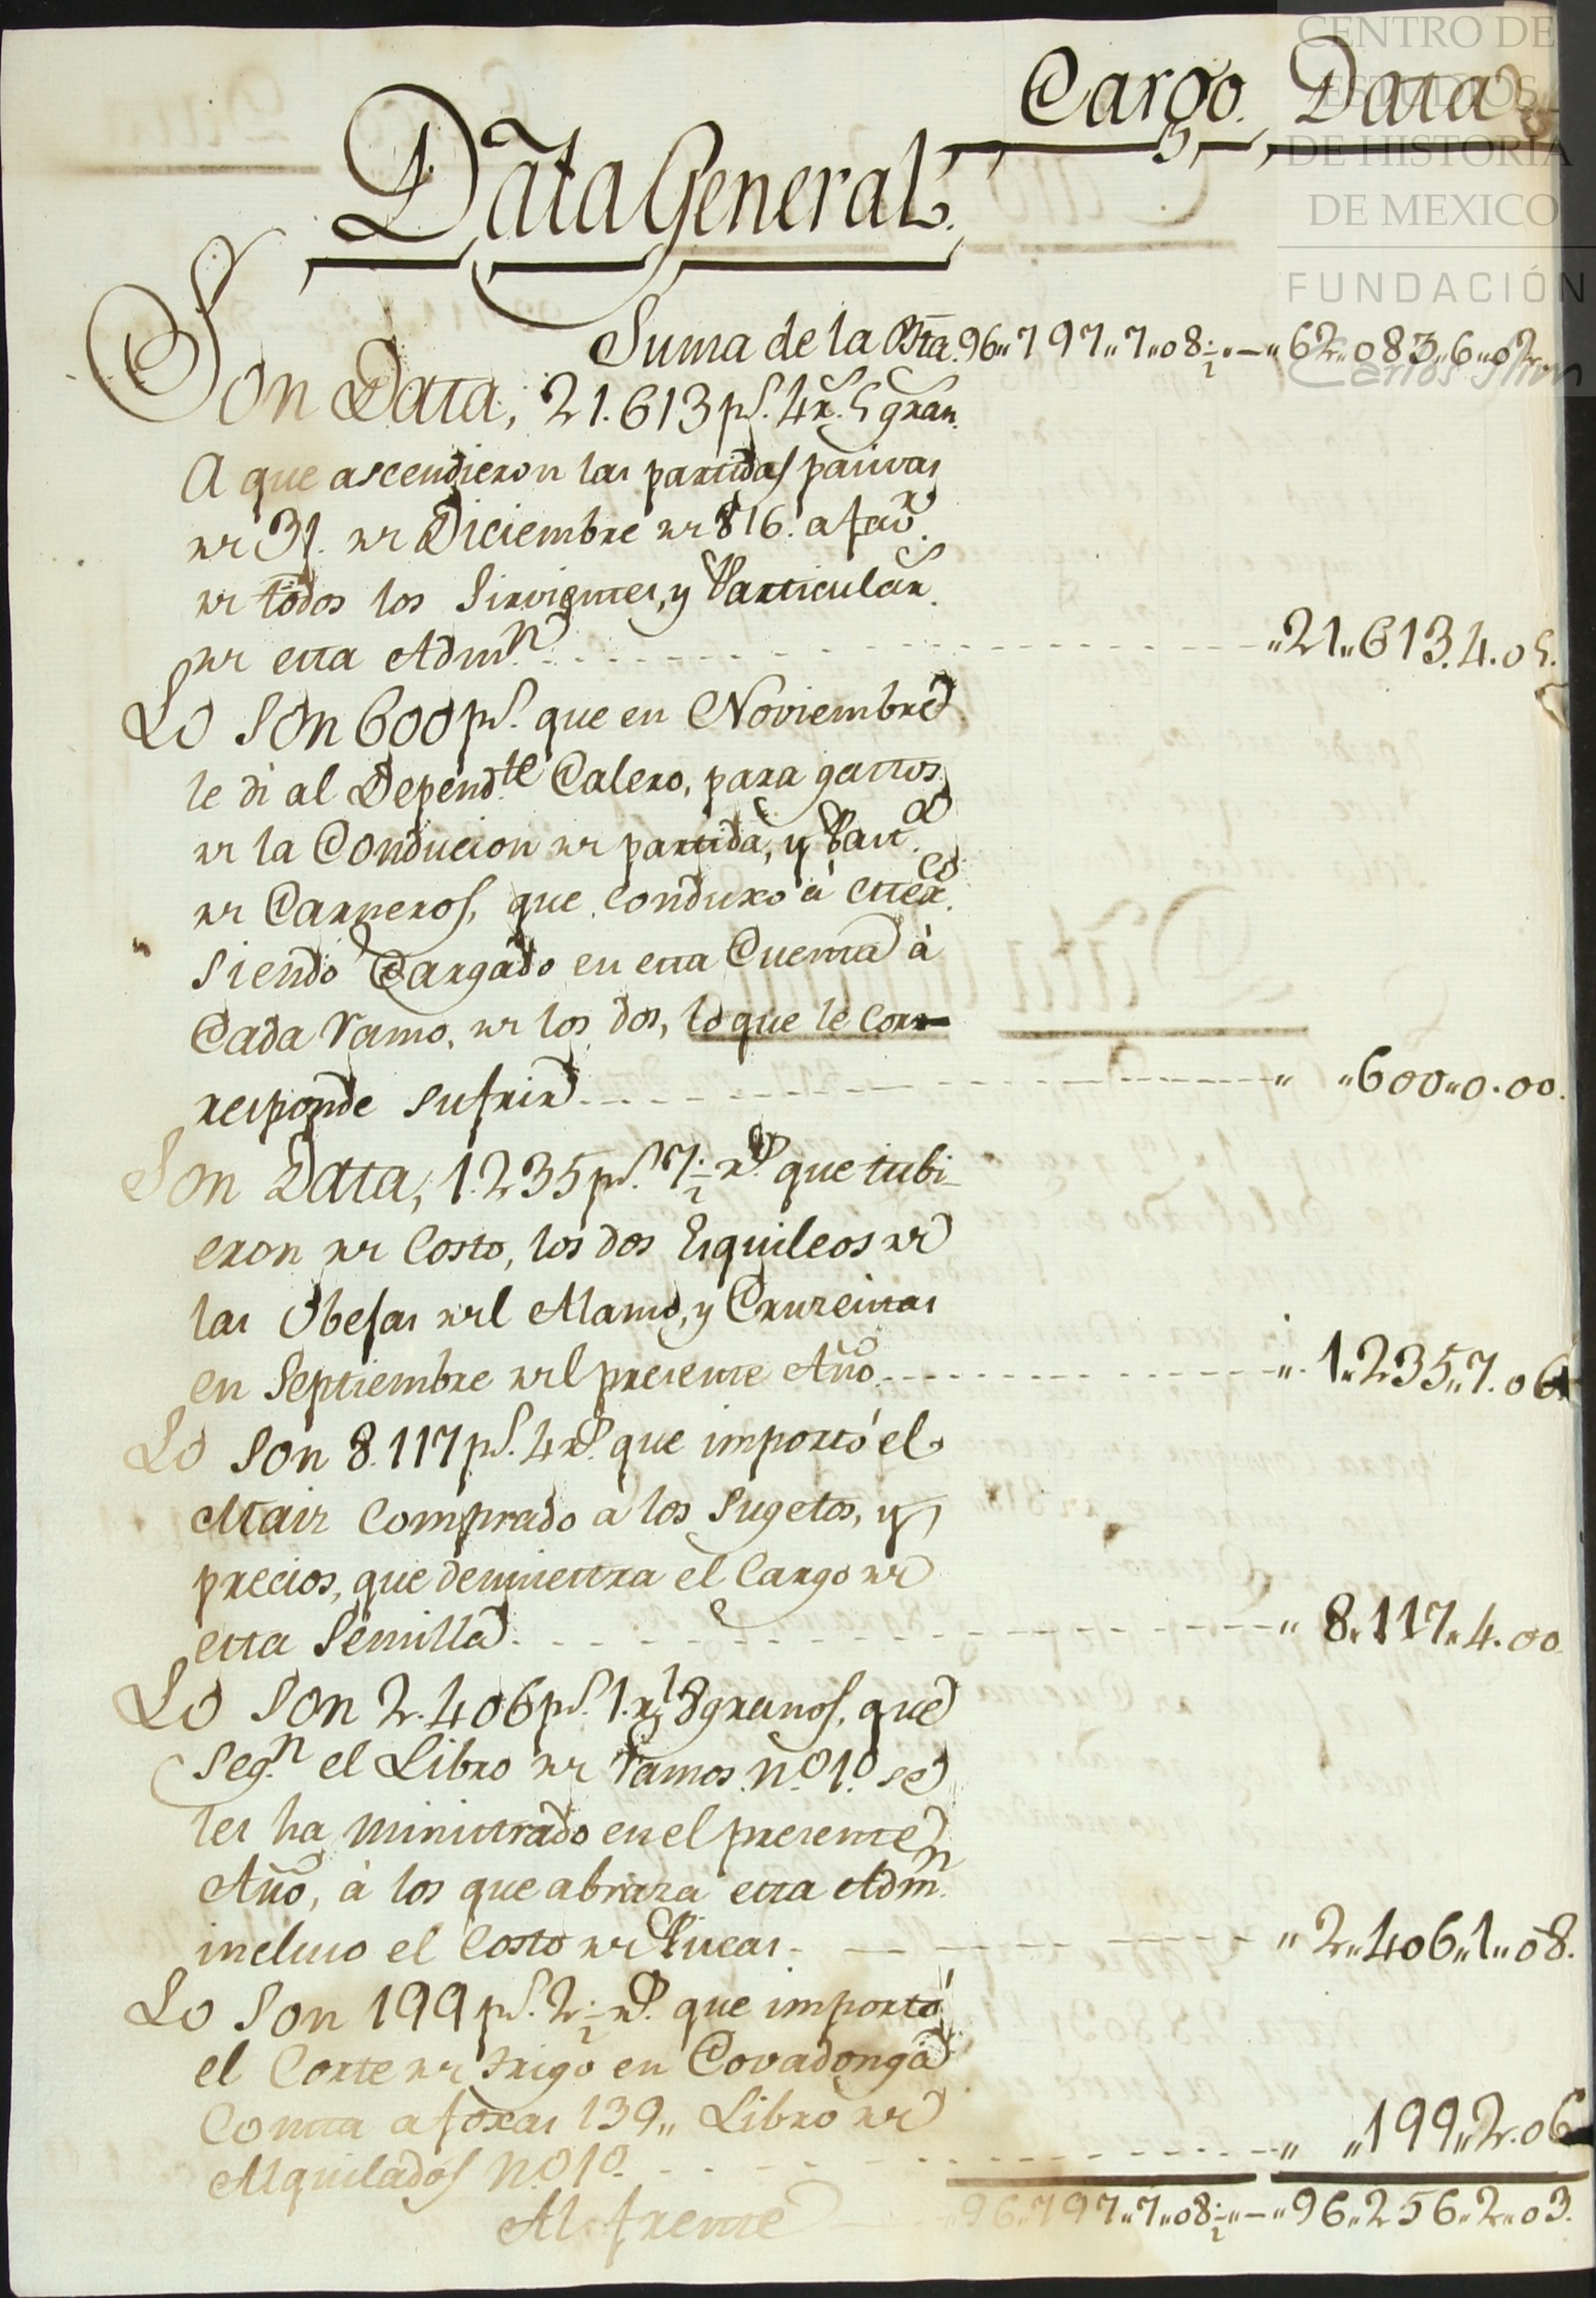 Cargo. Data
Data General.
Suma de la Bta. 96„797„7„08½„—„62„083„6„02.
Son Data, 21.613 ps. 4 rs. 5 gran.
A que ascendieron las partidas pasivas
de 31. de Diciembre de 816. a favr.
de todos los Sirvientes, y Particulars.
de esta Admn. „21„613.4.05.
Lo son 600 ps. que en Noviembre
le di al Dependte. Calero, para gastos
de la Conducion de partida, y
de Carneros, que conduxo à Mexco.
siendo Cargado en esta Cuenta à
Cada ramo, de los dos, lo que le Corr-
responde sufrir „ „600„0.00.
Son Data, 1.235 ps. 7½ rs. que tubi-
eron de Costo, los dos Esquileos de
las Obejas del Alamo, y Cruzeitas
en Septiembre del presente Año „. 1„235„7.06
Lo son 8.117 ps. 4 rs. que importó el
Maiz Comprado à los Sugetos, y
precios, que demuestra el Cargo de
esta Semilla „ 8.117„4.00
Lo son 2.406 ps. 1. rl 8 granos, que
segn. el Libro de ramos no. 1o. se
les ha ministrado en el presente
Año, à los que abraza esta Admn.
incluso el Costo de Pitcas „2„406„1„08.
Lo son 199 ps. 2½ rs. que importó
el Corte de trigo en Covadonga
Consta a foxas 139„ Libro de
Alquilados no. 1o. „ „199„2.06
Al frente „96„797„7„08½„—„96„256„2„03.
CENTRO DE
ESTUDIOS
DE HISTORIA
DE MEXICO
FUNDACIÓN
Carlos Slim